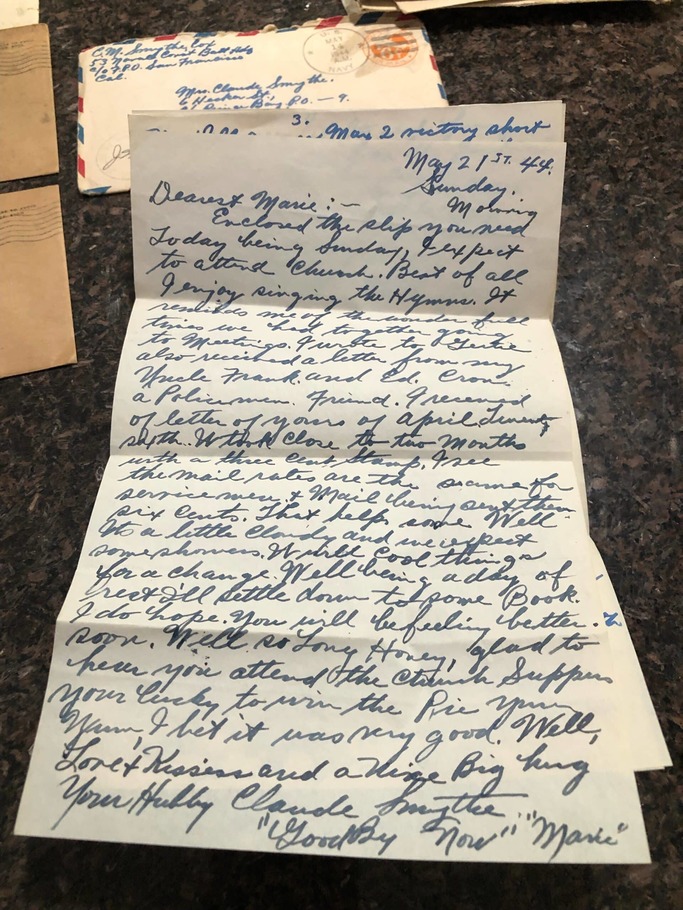 C.M. Smythe Cox
53 Naval Const Batt Hdq
c/o F.P.O. San Francisco
Cal.
U.S.
MAY
NAVY
Mrs. Claude Smythe.
6 Hecker St.
P.O. — 9.
3.
May 2 victory short
May 21ST. 44.
Sunday.
Morning
Dearest Marie:—
Enclosed the slip you need
Today being Sunday, I expect
to attend Church. Best of all
I enjoy singing the Hymns. It
reminds me of the wonder full
times we had together going
to Meetings. I wrote to Gertie
also received a letter from my
Uncle Frank. and Ed. Crone
a Policemen. Friend. I received
of letter of yours of April Twenty
sixth. It took Close to two Months
with a three Cent Stamp. I see
the mail rates are the seame for
service men. & Mail being sent them
six Cents. That helps some Well
Its a little Cloudy and we expect
some showers. It will Cool things
for a change. Well being a day of
rest I'll settle down to some Book.
I do hope. You will be feeling better.
soon. Well so Long Honey, glad to
hear you attend the Church Suppers
your lucky to win the Pie Yum
Yum, I bet it was very good. Well,
Love & Kissess and a Nice Big hug
Your Hubby Claude Smythe
"GoodBy Now" "Marie"